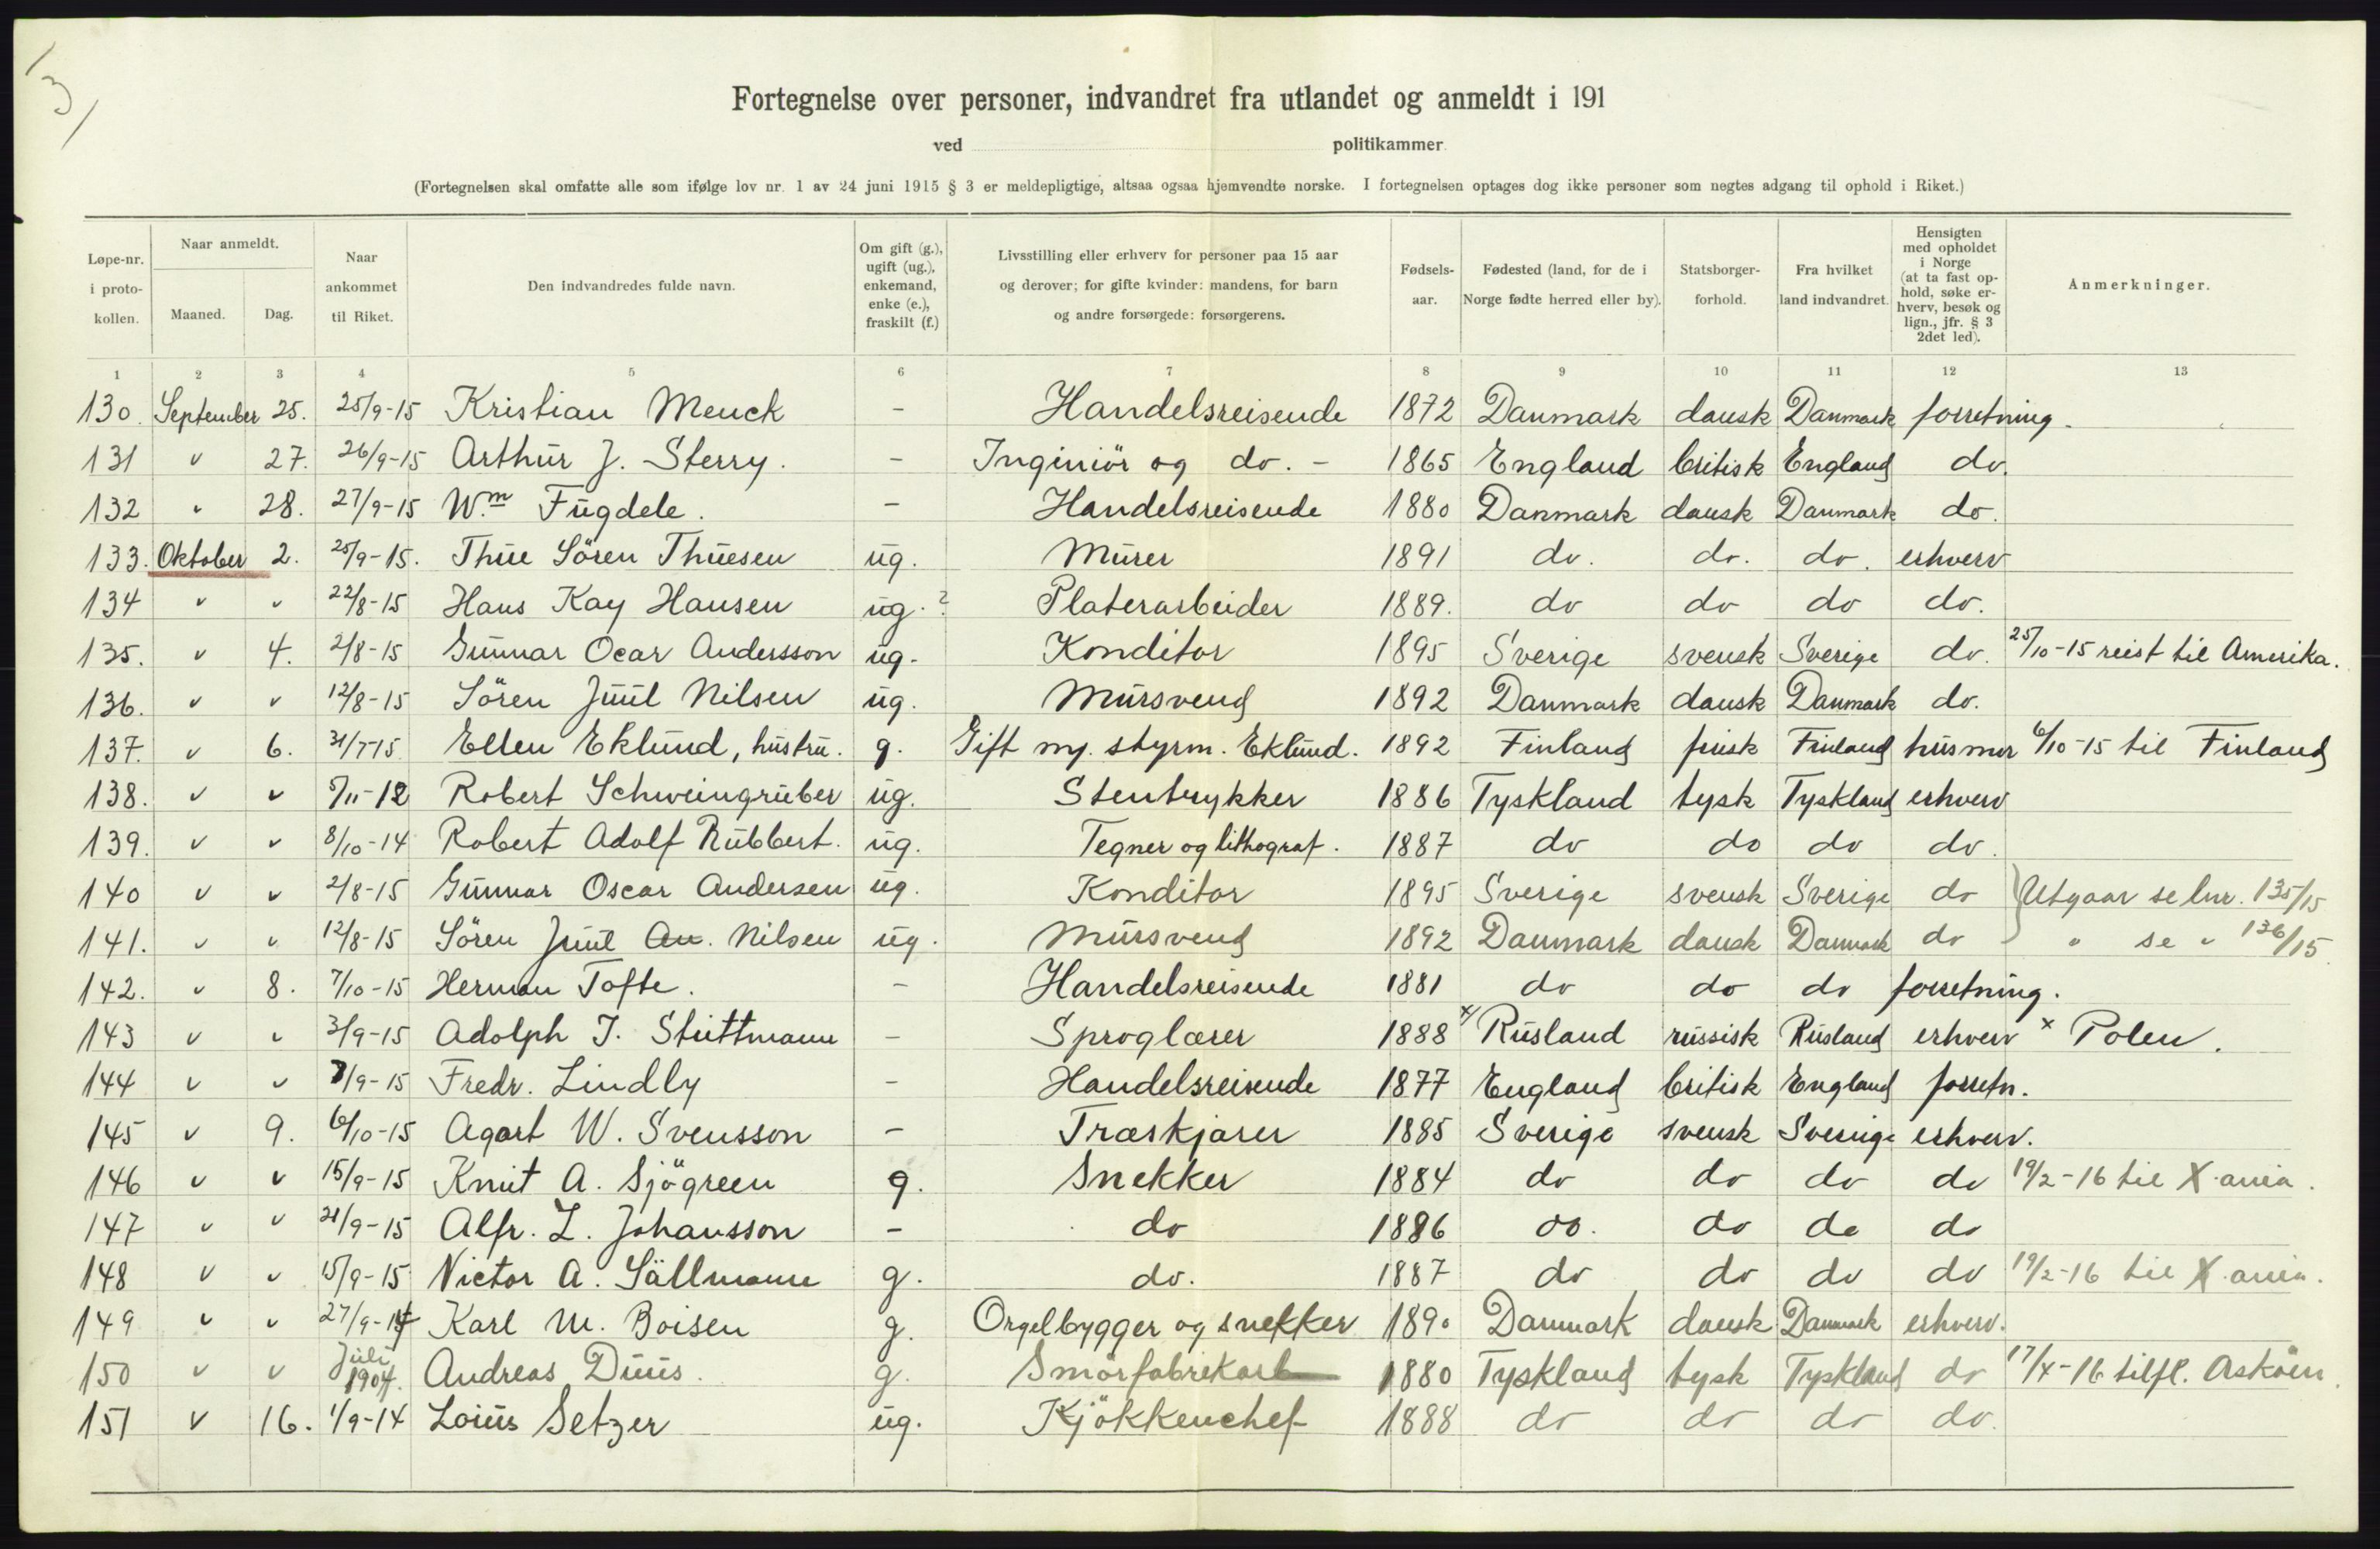 3
Fortegnelse over personer, indvandret fra utlandet og anmeldt i 191
ved politikammer
(Fortegnelsen skal omfatte alle som ifølge lov nr. 1 av 24 juni 1915 § 3 er meldepligtige, altsaa ogsaa hjemvendte norske. I fortegnelsen optages dog ikke personer som negtes adgang til ophold i Riket.)
Løpe-nr. i proto-kollen. Naar anmeldt. Maaned. Dag. Naar ankommet til Riket. Den indvandredes fulde navn. Om gift (g.), ugift (ug.), enkemand, enke (e.), fraskilt (f.) Livsstilling eller erhverv for personer paa 15 aar og derover; for gifte kvinder: mandens, for barn og andre forsørgede: forsørgerens. Fødsels-aar. Fødested (land, for de i Norge fødte herred eller by). Statsborger-forhold. Fra hvilket land indvandret. Hensigten med opholdet i Norge (at ta fast op-hold, søke er-hverv, besøk og lign., jfr. § 3 2det led). Anmerkninger.
1 2 3 4 5 6 7 8 9 10 11 12 13
130. September 25. 25/9-15 Kristian Menck - Handelsreisende 1872 Danmark dansk Danmark forretning.
131 " 27. 26/9-15 Arthur J. Sterry. - Ingeniör og do. - 1865 England britisk England do.
132 " 28. 27/9-15 Wm. Fugdele. - Handelsreisende 1880 Danmark dansk Danmark do.
133. Oktober 2. 25/9-15. Thue Sören Thuesen ug. Murer 1891 do. do. do. erhverv
134 " " 22/8-15 Hans Kay Hansen ug.? Platerarbeider 1889. do do do do.
135. " 4. 2/8-15 Gunnar Ocar Andersson ug. Konditor 1895 Sverige svensk Sverige do. 25/10-15 reist til Amerika.
136. " " 12/8-15 Sören Juul Nilsen ug. Mursvend 1892 Danmark dansk Danmark do.
137. " 6. 31/7-15 Ellen Eklund, hustru. g. Gift m. styrm. Eklund. 1892 Finland finsk Finland husmor 6/10-15 til Finland
138. " " 5/11-12 Robert Schweingruber ug. Stentrykker 1886 Tyskland tysk Tyskland erhverv
139. " " 8/10-14 Robert Adolf Rubbert. ug. Tegner og lithograf. 1887 do do do do.
140 " " 2/8-15 Gunnar Oscar Andersen ug. Konditor 1895 Sverige svensk Sverige do } Utgaar se lnr. 135/15
141. " " 12/8-15 Sören Juul An. Nilsen ug. Mursvend 1892 Danmark dansk Danmark do " se " 136/15.
142. " 8. 7/10-15 Herman Tofte. - Handelsreisende 1881 do do do forretning.
143 " " 3/9-15 Adolph J. Stuttmann - Sproglærer 1888 x/ Rusland russisk Rusland erhverv x Polen.
144 " " 7/9-15 Fredr. Lindly - Handelsreisende 1877 England britisk England forretn.
145 " 9. 6/10-15 Agart W. Svensson - Træskjærer 1885 Sverige svensk Sverige erhverv.
146 " " 15/9-15 Knut A. Sjögreen g. Snekker 1884 do do do do 19/2-16 til X.ania.
147 " " 21/9-15 Alfr. L. Johansson - do 1886 do. do do do
148 " " 15/9-15 Victor A. Sällmann g. do. 1887 do do do do 19/2-16 til X.ania.
149 " " 27/9-14 Karl M. Boisen g. Orgelbygger og snekker 1890 Danmark dansk Danmark erhverv.
150 " " Juli 1904. Andreas Duus. g. Smörfabrikarb 1880 Tyskland tysk Tyskland do 17/4-16 tilfl. Asköen.
151 " 16. 1/9-14 Loius Setzer ug. Kjökkenchef 1888 do do do do.